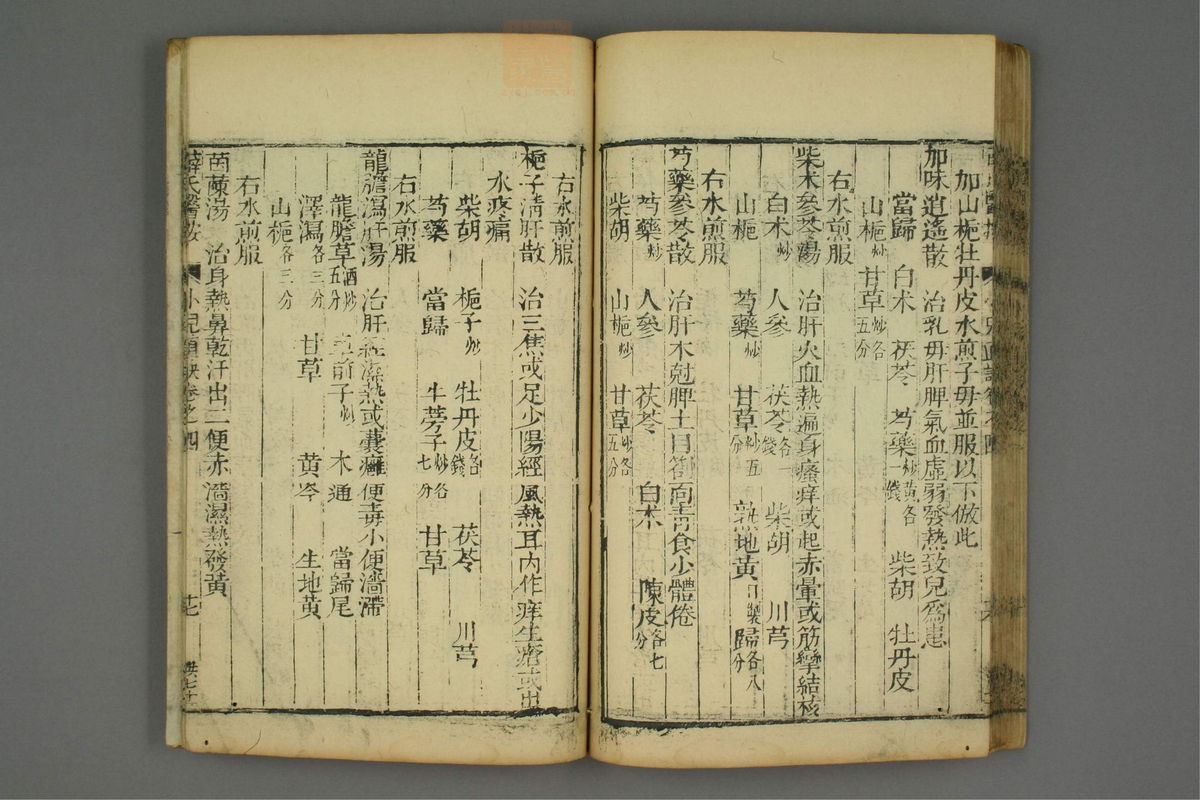 加山梔牡丹皮水煎子母並服以下倣此
加味逍遙散　治乳母肝脾氣血虛弱發熱致兒爲患
當歸　白朮　茯苓　芍藥炒黃各一錢　柴胡　牡丹皮
山梔　甘草炒各五分
右水煎服
柴朮參苓湯　治肝火血熱遍身瘙痒或起赤暈或筋攣結核
白朮炒　人參　茯苓各一錢　柴胡　川芎
山梔　芍藥炒　甘草炒五分　熟地黃　歸各八分
右水煎服
芍藥參苓散　治肝木尅脾土　面青食少體倦
芍藥炒　人參　茯苓　白朮　陳皮各七分
柴胡　山梔炒　甘草炒各五分
右水煎服
梔子淸肝散　治三焦或足少陽經風熱耳內作痒生瘡或出
水疼痛
柴胡　梔子炒　牡丹皮各一錢　茯苓　川芎
芍藥　當歸　牛蒡子炒各七分　甘草
右水煎服
龍膽瀉肝湯　治肝經濕熱或囊癰便毒小便濇滯
龍膽草酒炒五分　車前子炒　木通　當歸尾
澤瀉各三分　甘草　黃岑　生地黃
山梔各三分
右水煎服
茵蔯湯　治身熱鼻乾汗出二便赤濇濕熱發黃
薛氏醫按　小兒直訣卷之四　十七